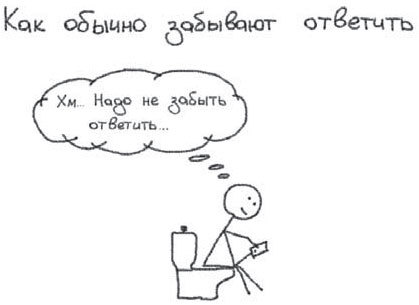 Как обычно забывают ответить
Хм... Надо не забыть
ответить...